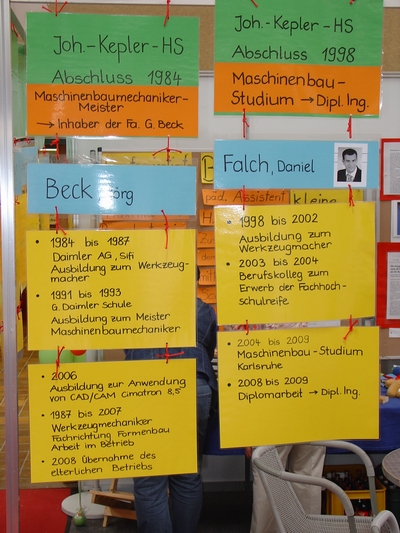 Joh.-Kepler-HS
Abschluss 1984
Maschinenbaumechaniker-
Meister
→ Inhaber der Fa. G. Beck
Beck
• 1984 bis 1987
Daimler AG, Sifi
Ausbildung zum Werkzeug-
macher
• 1991 bis 1993
G. Daimler Schule
Ausbildung zum Meister
Maschinenbaumechaniker
• 2006
Ausbildung zur Anwendung
von CAD/CAM Cimatron 8,5
• 1987 bis 2007
Werkzeugmechaniker
Fachrichtung Formenbau
Arbeit im Betrieb
• 2008 Übernahme des
elterlichen Betriebs
Joh.-Kepler-HS
Abschluss 1998
Maschinenbau-
Studium → Dipl. Ing.
Falch, Daniel
• 1998 bis 2002
Ausbildung zum
Werkzeugmacher
• 2003 bis 2004
Berufskolleg zum
Erwerb der Fachhoch-
schulreife
• 2004 bis 2009
Maschinenbau-Studium
Karlsruhe
• 2008 bis 2009
Diplomarbeit → Dipl. Ing.
päd. Assistent
kleine